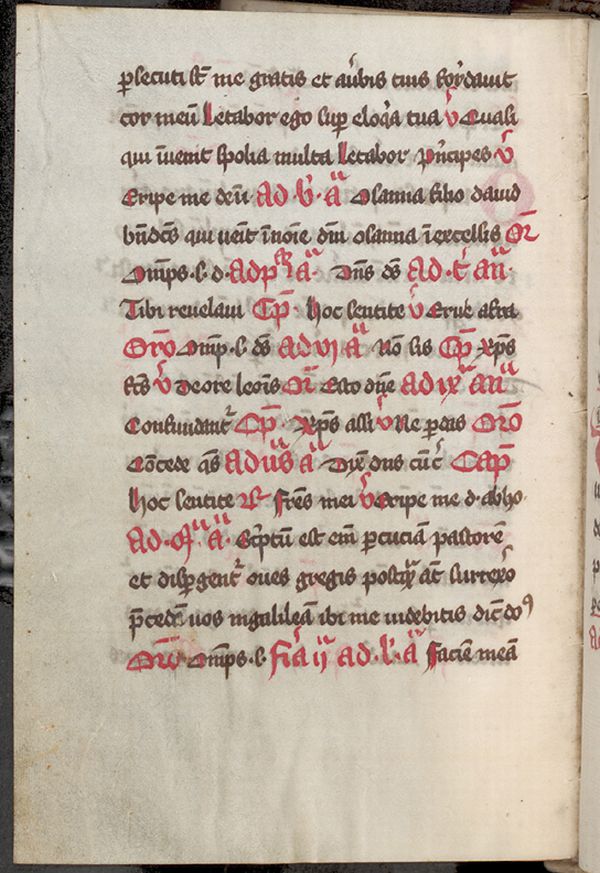 ꝑsecuti st̄ me gratis et av̄bis tuis foꝛ̄dauit
cor meū Letabor ego suꝑ eloq̄a tua v̄ Quasi
qui īuenit spolia multa Letabor pn̄cipes v̄
Eripe me deū ad · b̄ · a Osanna filio dauid
bn̄dc̄s qui ueīt īnoīe dn̄i osanna īexcelsis Or̄
Omp̄s · s · d · adp̄ a · Dn̄s ds̄ ad · t̄ an̄ ·
Tibi reuelaui Cp̄ · hoc sentite v̄ Erue afra
Oro̅ Omp̄ · s · ds̄ ad vj a Nō sis Cp̄ xp̄s
fcs̄ v̄ De ore leōis Or̄ Esto dn̄e ad ix an̄
Confundant̄ Cp̄ · xp̄s assi v̄ Ne perdas Orō
Cōcede qs̄ ad us̄ a Dix̄ dn̄s cuī Cap̄
hoc sentite R̄ fr̄es mei v̄ Eripe me d · abho
ad · m̄ · a · Sc̄ptū est em̄ ꝑcuciā pastorē
et disꝑgent̄ oues gregis postq̄ āt surrexo
p̄cedā uos ingalileā ibi me uidebitis dic̄ dōꝰ
Orō Omp̄s · s · fīa ij ad · l̄ · a faciē meā